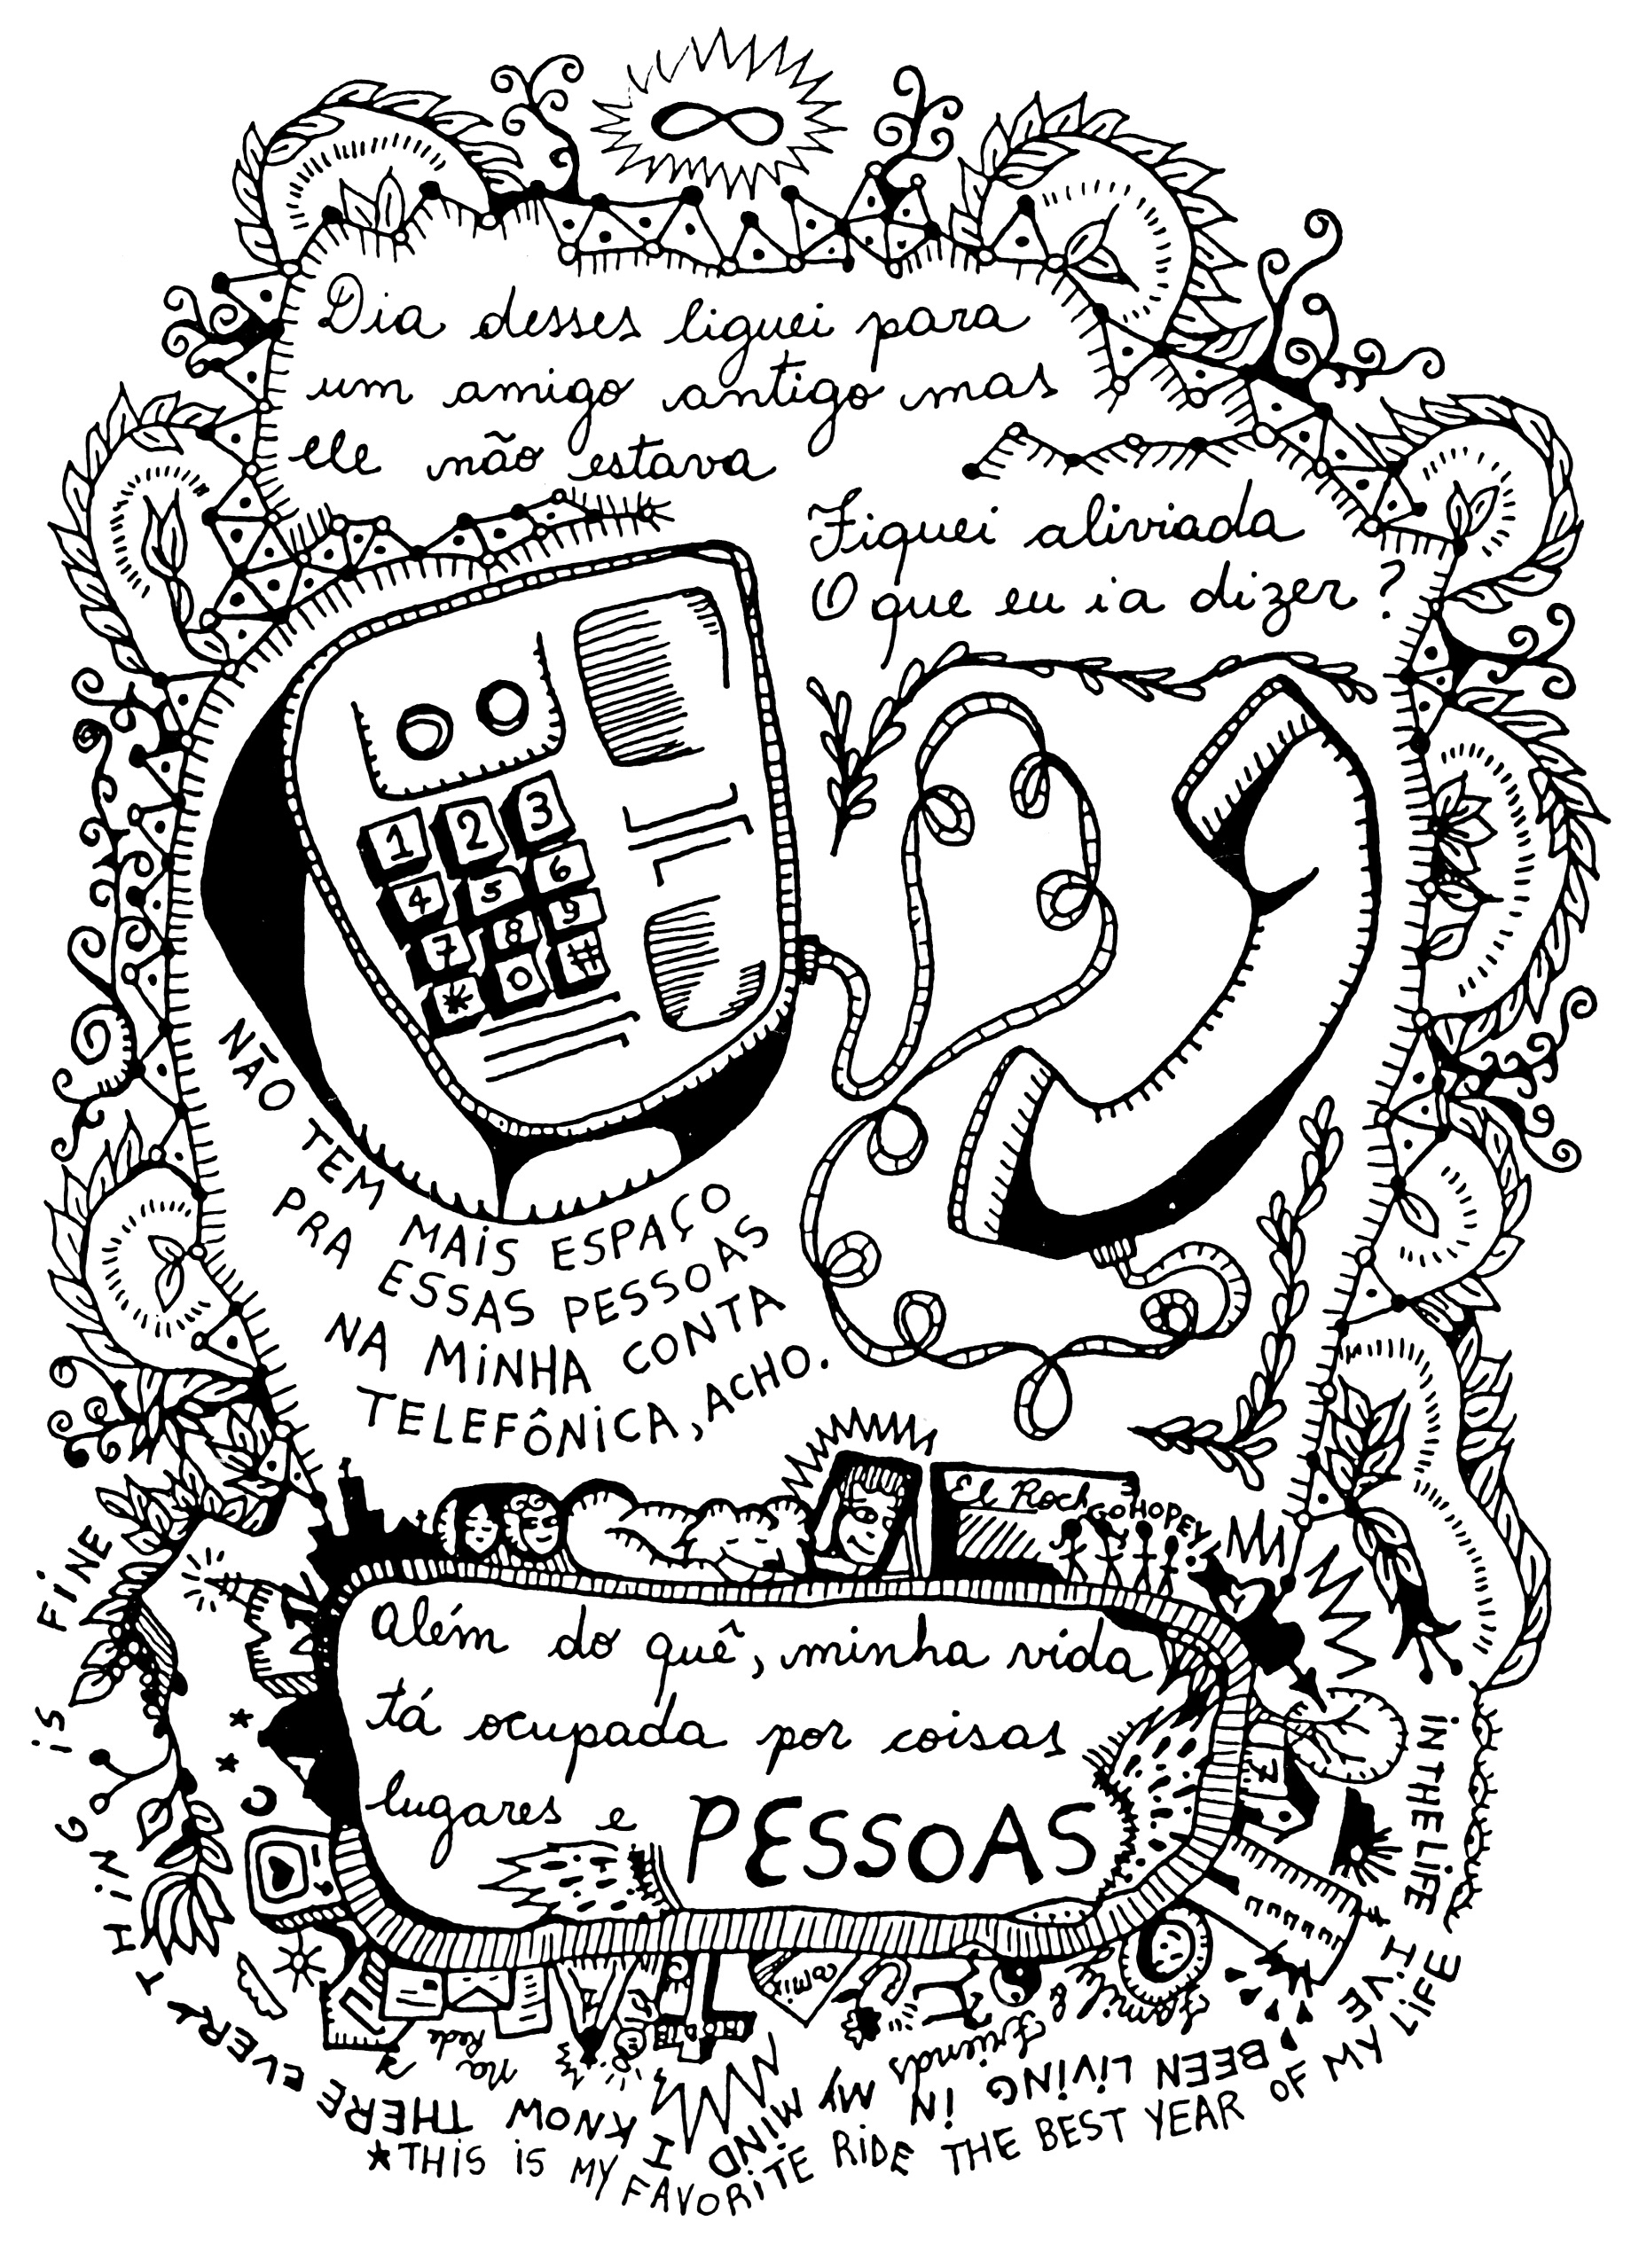 Dia desses liguei para
um amigo antigo mas
ele não estava
Fiquei aliviada
O que eu ia dizer?
1 2 3
4 5 6
7 8 9
* 0 #
NÃO TEM MAIS ESPAÇO
PRA ESSAS PESSOAS
NA MINHA CONTA
TELEFÔNICA, ACHO.
El Rock
GOHOPEY
Além do quê, minha vida
tá ocupada por coisas
lugares e PESSOAS
Na Rede
family &
friends
IN THE LIFE I'VE BEEN LIVING IN MY MIND I KNOW THERE EVERYTHING IS FINE
★THIS IS MY FAVORITE RIDE THE BEST YEAR OF MY LIFE